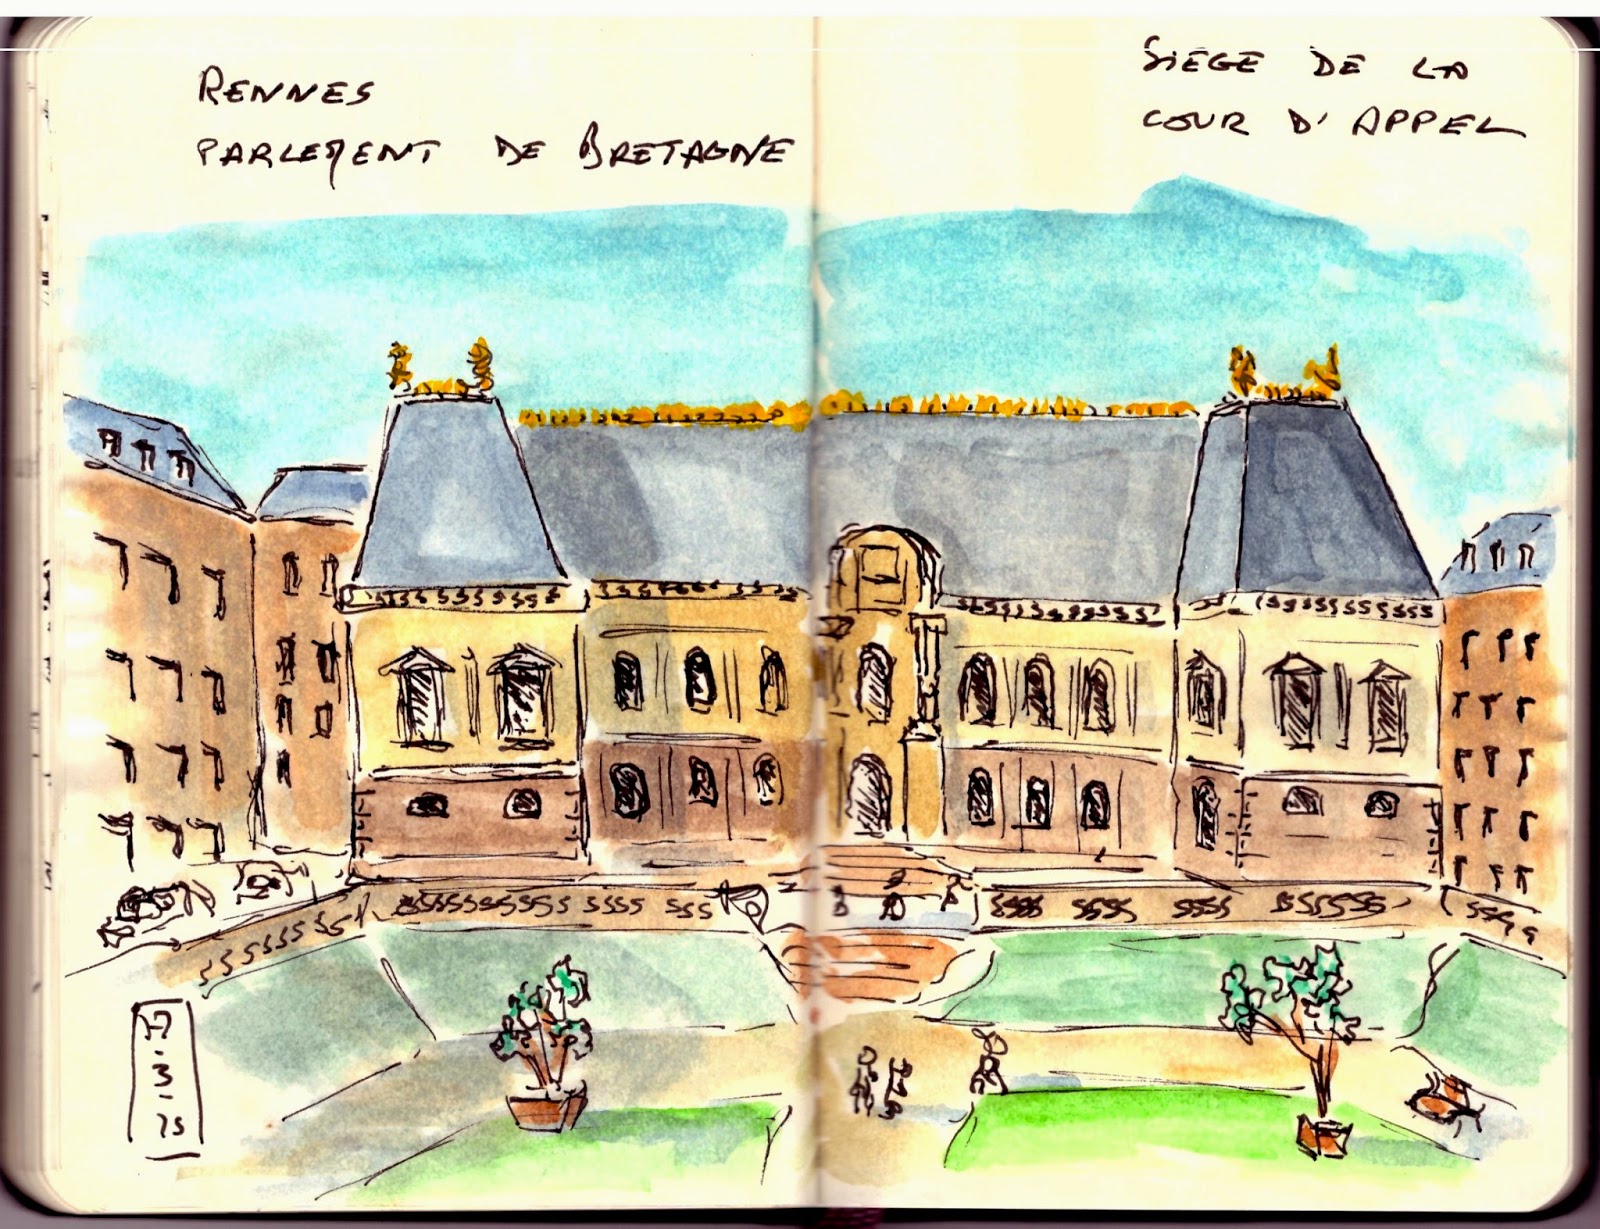 RENNES
PARLEMENT DE BRETAGNE
SIÈGE DE LA
COUR D'APPEL
3
15